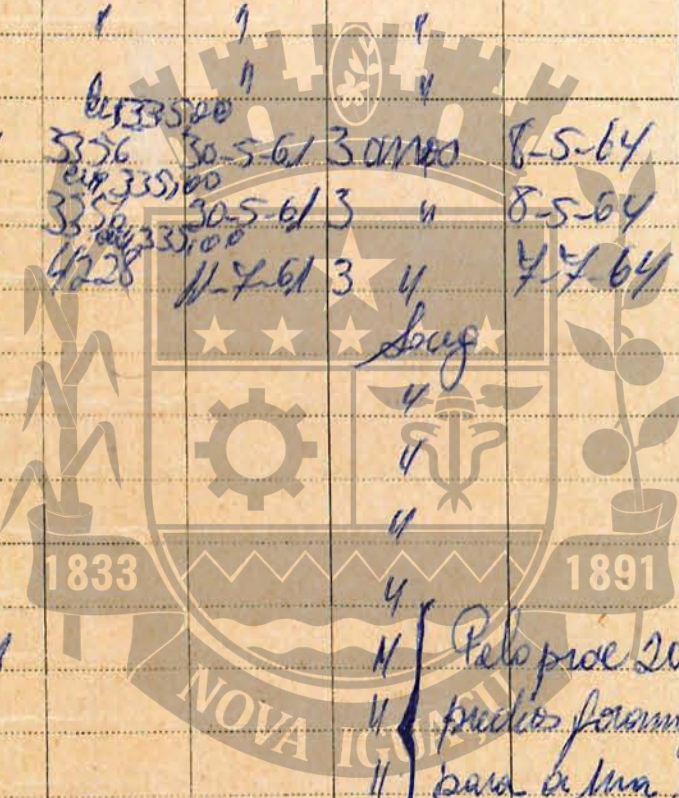 " " "
" "
Cr$ 335,00
3356 30-5-61 3 annos 8-5-64
Cr$ 335,00
3356 30-5-61 3 " 8-5-64
Cr$ 335,00
4228 11-7-61 3 " 7-7-64
"
"
"
1833 " 1891
" Pelo proc 20
" predios foram
" para a
NOVA IGUAÇU